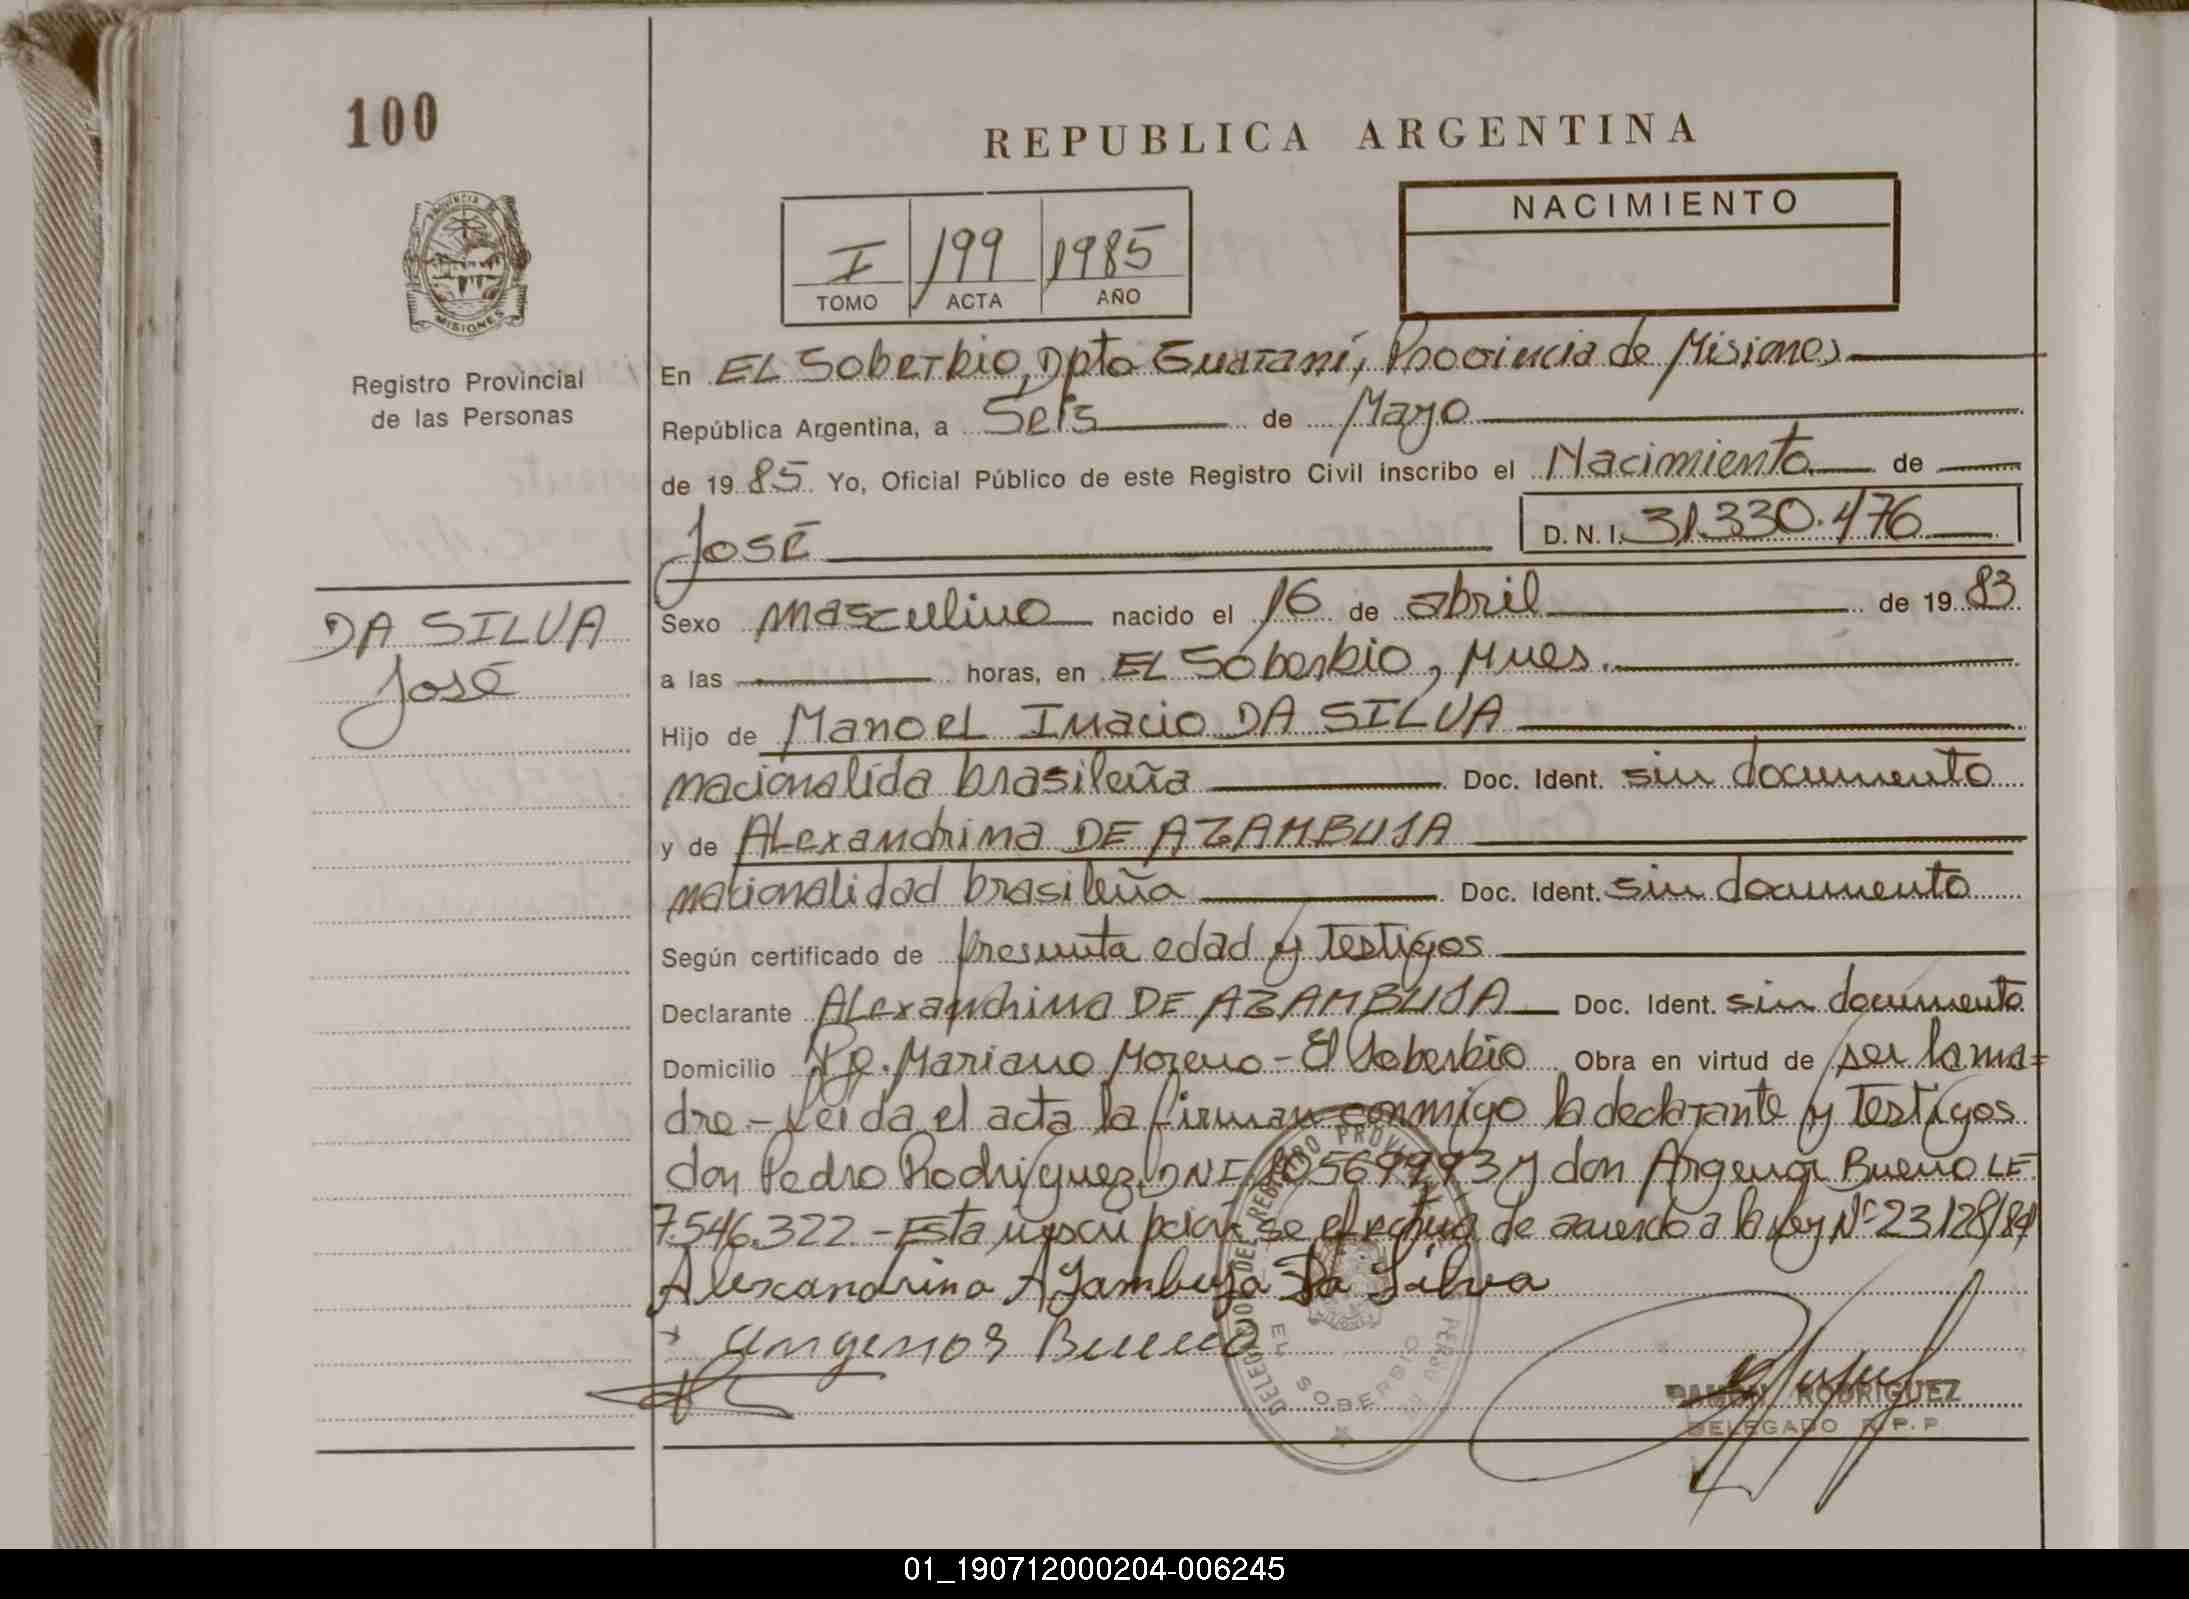 100
REPUBLICA ARGENTINA
PROVINCIA DE
MISIONES
Registro Provincial
de las Personas
I 199 1985
TOMO ACTA AÑO
NACIMIENTO
En EL Soberbio, Dpto Guaraní, Provincia de Misiones
República Argentina, a Seis de Mayo
de 1985 Yo, Oficial Público de este Registro Civil inscribo el Nacimiento de
José D. N. I. 31.330.476
DA SILVA
José
Sexo masculino nacido el 16 de abril de 1983
a las horas, en EL Soberbio, Mnes.
Hijo de Manoel Inacio DA SILVA
nacionalida brasileña Doc. Ident. sin documento
y de Alexandrina DE AZAMBUJA
nacionalidad brasileña Doc. Ident. sin documento
Según certificado de presunta edad y testigos
Declarante Alexandrina DE AZAMBUJA Doc. Ident. sin documento
Domicilio Pje. Mariano Moreno - El Soberbio Obra en virtud de ser la ma=
dre - Leida el acta la firman conmigo la declarante y testigos
don Pedro Rodriguez DNI 10569993 y don Argenor Bueno LE
7.546.322 - Esta inscripción se efectúa de acuerdo a la ley Nº 23128/84
Alexandrina Azambuja Da Silva
Angenor Bueno
EL SOBERBIO
RAMON RODRIGUEZ
DELEGADO R.P.P
01_190712000204-006245